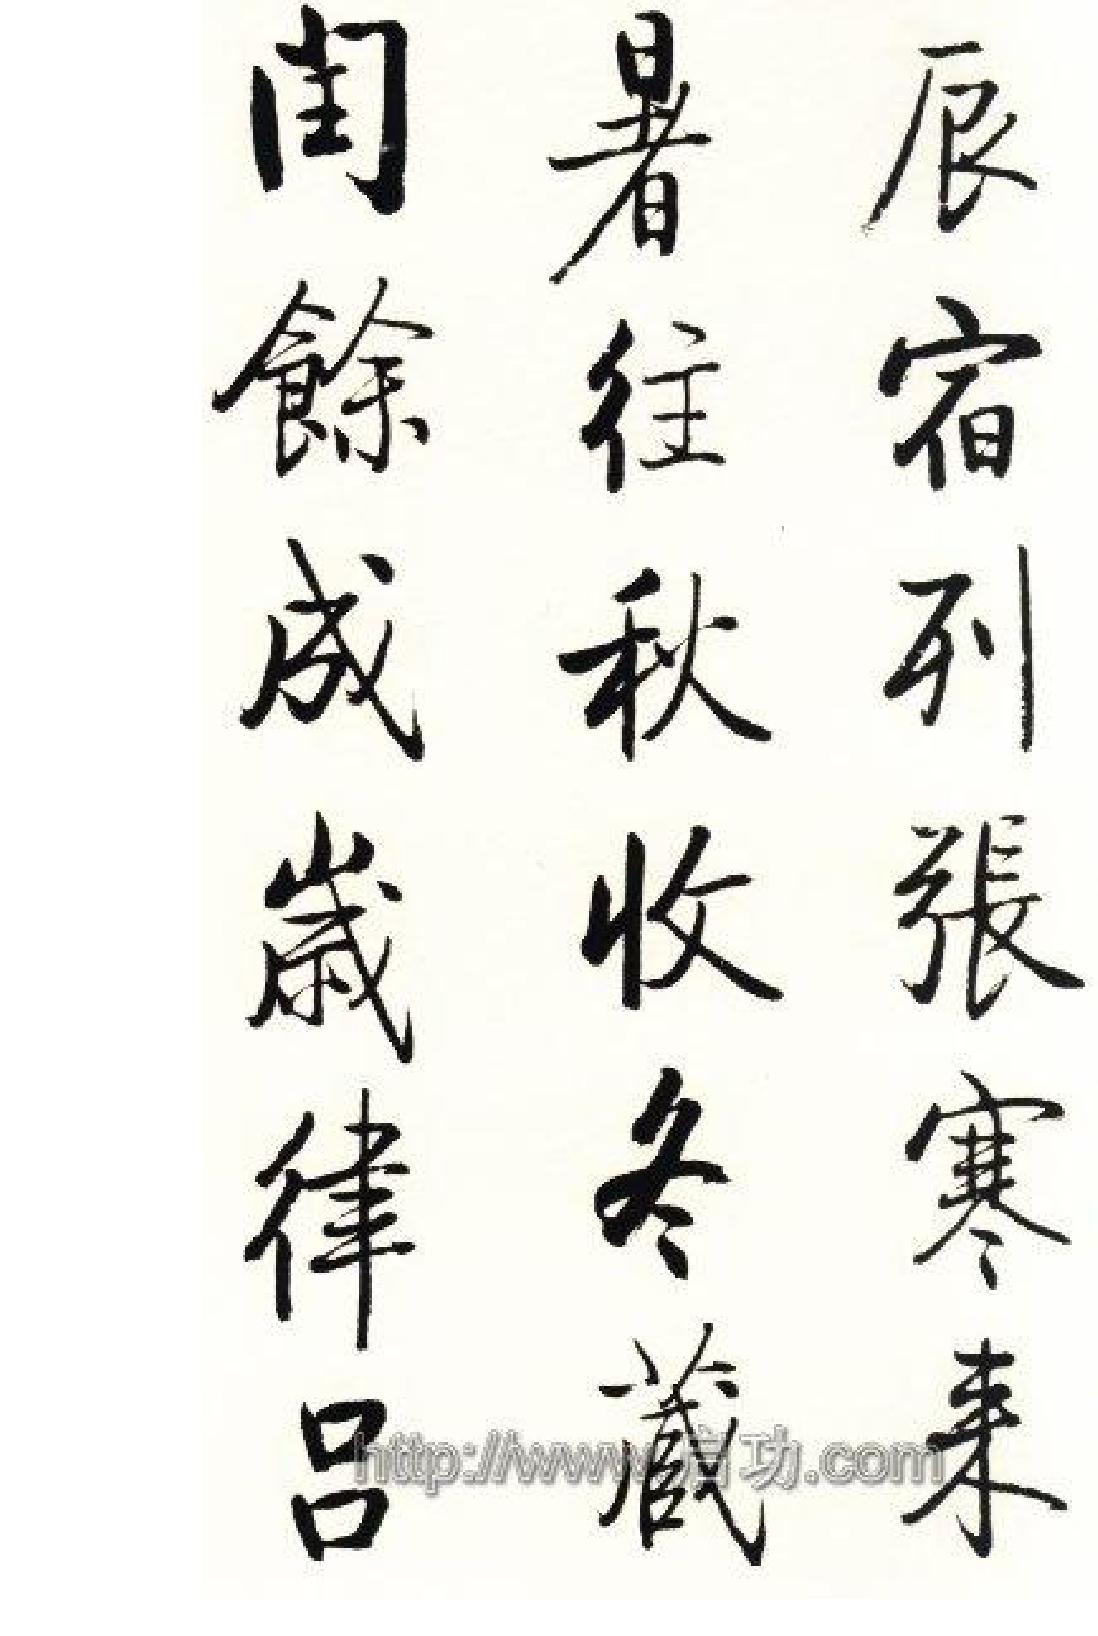 辰宿列張寒来
暑往秋收冬藏
閏餘成歲律吕
http://www.启功.com